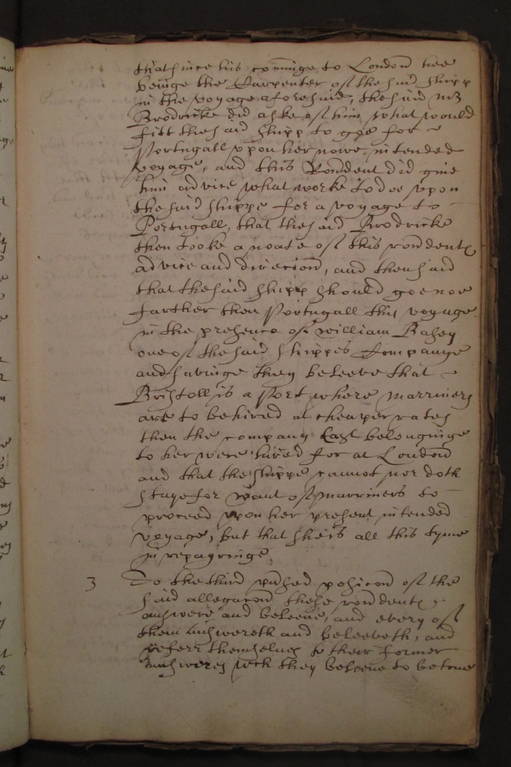 that since his comminge to London hee
beinge the Carpenter of the said shipp
in the voyage aforesaid, the said mr
Brodricke did aske of him what would
fitt the said shipp to goe for
Portugall upon her nowe intended
voyage, and this Rondent did give
him advice what worke to doe upon
the said shippe for a voyage to
Portugall, that the said Brodricke
then tooke a noate of this rondents
advice and direccion, and then said
that the said shipp should goe noe
farther then Portugall this voyage
in the presence of William Basey
one of the said shippes Companye
and havinge they beleeve that
Bristoll is a Port where marriners
are to be hired at cheaper rates
then the company last belonginge
to her were hired for at London
and that the shippe cannot nor doth
staye for want of marriners to
proceed upon her present intended
voyage, but that shee is all this tyme
in repayringe,
3 To the third pushed posicion of the
said allegacon these rondents
answere and beleeve, and every of
them answereth and beleeveth, and
referr themselves to their former
answeres wch they beleeve to be true